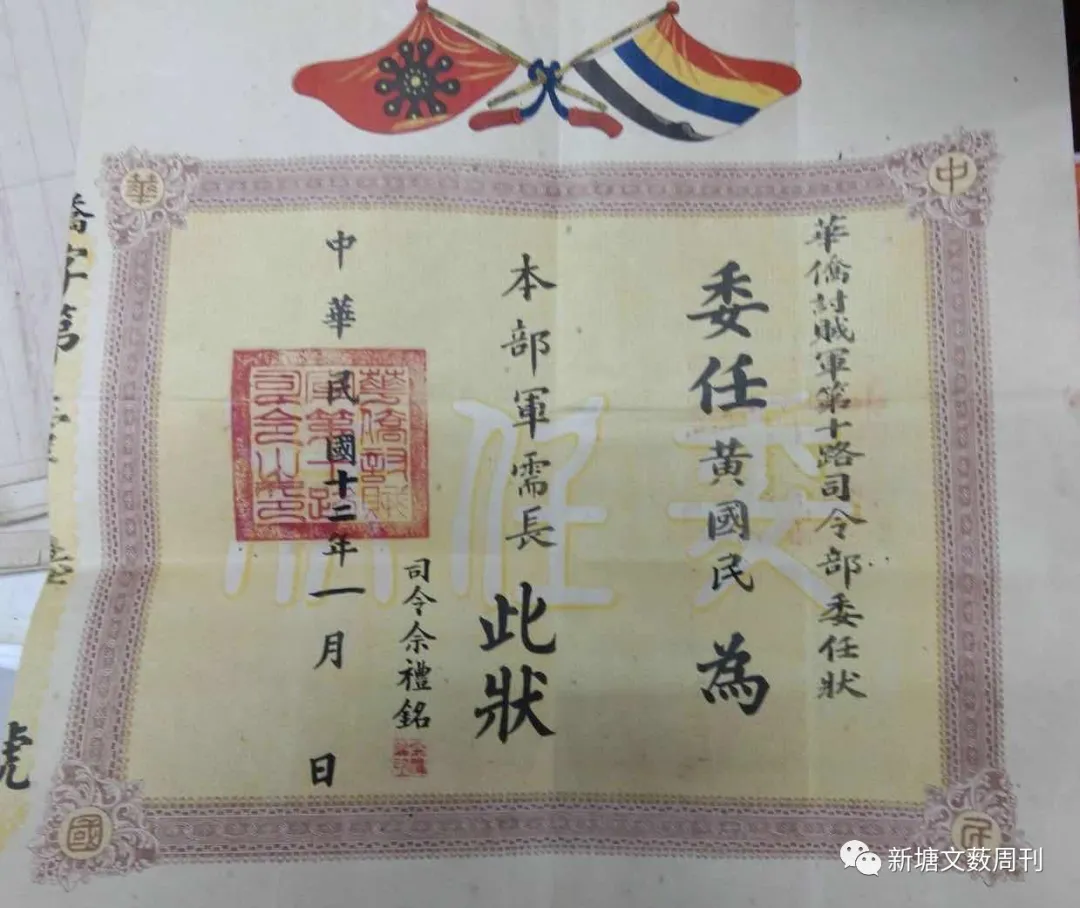 中華民國
華僑討賊軍第十路司令部委任狀
委任黃國民為
本部軍需長 此狀
司令佘禮銘
中華民國十二年一月 日
華僑討賊
軍第十路
司令之印
委任狀
僑字第
號
新塘文薮周刊